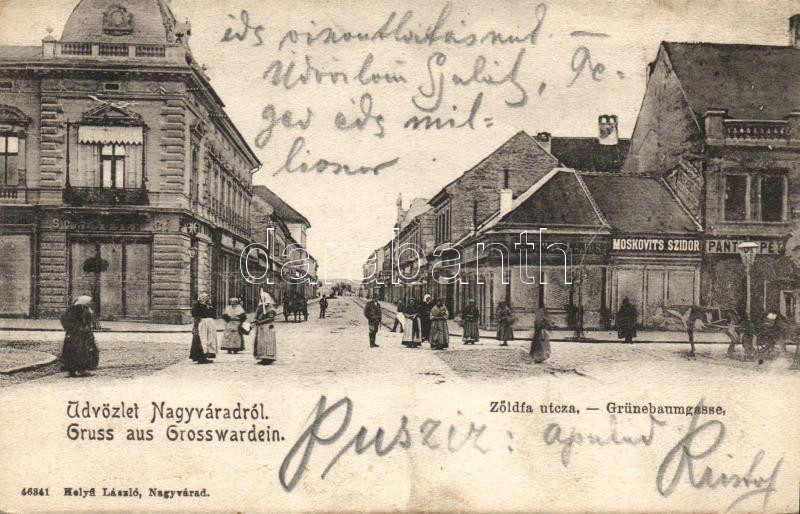 éds viszontlátásund –
Üdvözlöm Gyulát, Fe-
ger éds mil-
liosor
MOSKOVITS SZIDOR
PANT
darabanth
Üdvözlet Nagyváradról.
Gruss aus Grosswardein.
Zöldfa utcza. — Grünebaumgasse.
Puszir: apulud
Kristóf
46341 Helyfi László, Nagyvárad.